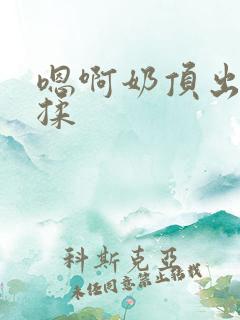 嗯啊奶頂出
揉
科斯克亞
未任同意禁止轉載